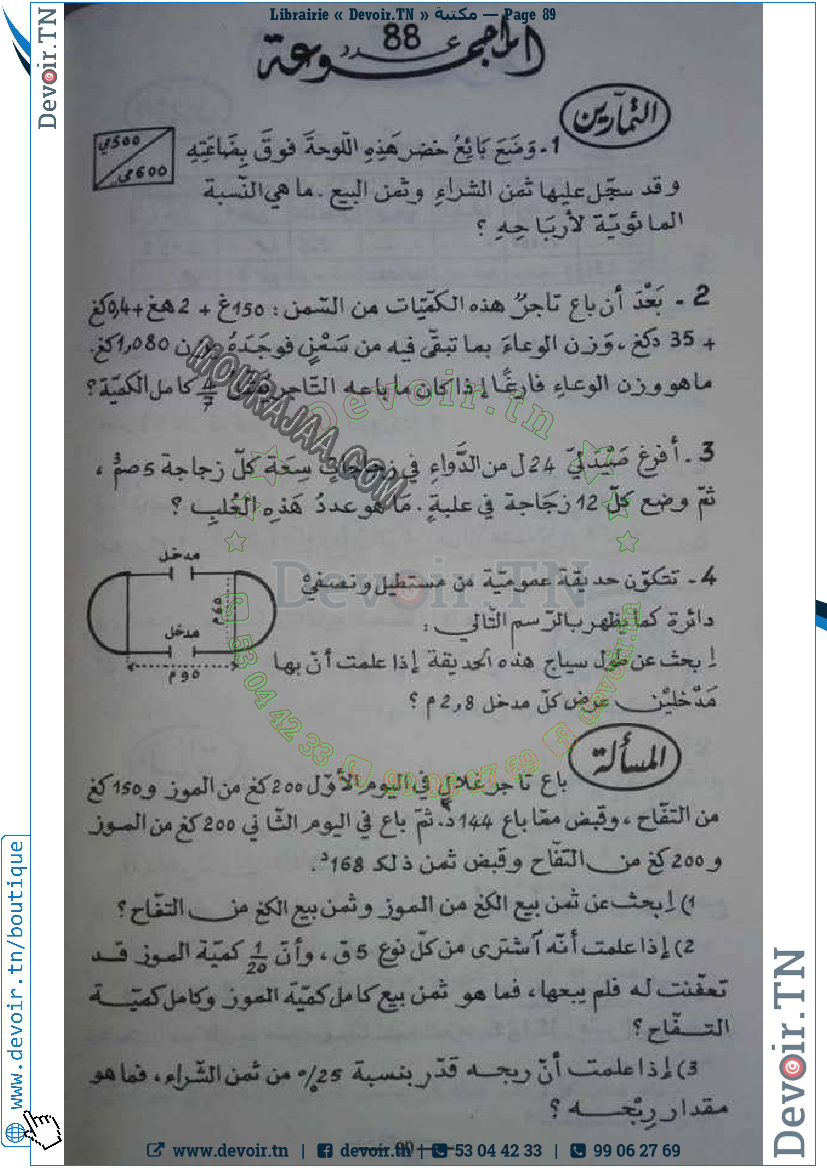 Librairie « Devoir.TN » مكتبة — Page 89
المجموعة عدد 88
التمارين
500 مي
600 مي
1 - وَضَعَ بَائِعُ خضر هَذِهِ اللّوحةَ فوقَ بِضَاعَتِهِ
وقد سجّل عليها ثمن الشراءِ وثمن البيع . ما هي النّسبة
المائويّة لأربَاحِهِ ؟
2 - بَعْدَ أن باع تاجرٌ هذه الكمّيات من السّمن : 150غ + 2هغ + 0,4كغ
+ 35 دكغ ، وَزن الوعاءَ بما تبقّى فيه من سَمْنٍ فوجَدَهُ 1,080كغ.
ما هو وزن الوعاءِ فارغًا إذا كان ما باعه التّاجر 4/7 كامل الكميّة ؟
3 - أفرغ صَيْدَليّ 24ل من الدَّواءِ في زجاجاتٍ سِعَة كلّ زجاجة 5صم³ ،
ثمّ وضع كلّ 12 زجَاجة في علبةٍ . مَا هو عددُ هَذِهِ العُلبِ ؟
4 - تتكوّن حديقة عموميّة من مستطيل ونصفيْ
دائرة كما يظهر بالرّسم التّالي :
إبحث عن طول سياج هذه الحديقة إذا علمت أنّ بها
مَدْخليْن عرض كلّ مدخل 2,8 م ؟
مدخل
مدخل
المسألة
باع تاجر غلالٍ في اليوم الأوّل 200كغ من الموز و150كغ
من التفّاح ، وقبض ممّا باع 144د. ثمّ باع في اليوم الثّاني 200كغ من الموز
و200كغ من التفّاح وقبض ثمن ذلك 168د.
1) إبحث عن ثمن بيع الكغ من الموز وثمن بيع الكغ من التفّاح ؟
2) إذا علمت أنّه آشترى من كلّ نوع 5ق ، وأنّ 1/20 كميّة الموز قد
تعفّنت له فلم يبعها ، فما هو ثمن بيع كامل كميّة الموز وكامل كميّة
التفّاح ؟
3) إذا علمت أنّ ربحه قدّر بنسبة 25% من ثمن الشّراء ، فما هو
مقدار رِبْحه ؟
MOURAJAA.COM
@devoir.tn
Devoir.TN
53 04 42 33
99 06 27 69
devoir.tn
Devoir.TN
www.devoir.tn/boutique
Devoir.TN
www.devoir.tn | devoir.tn | 53 04 42 33 | 99 06 27 69